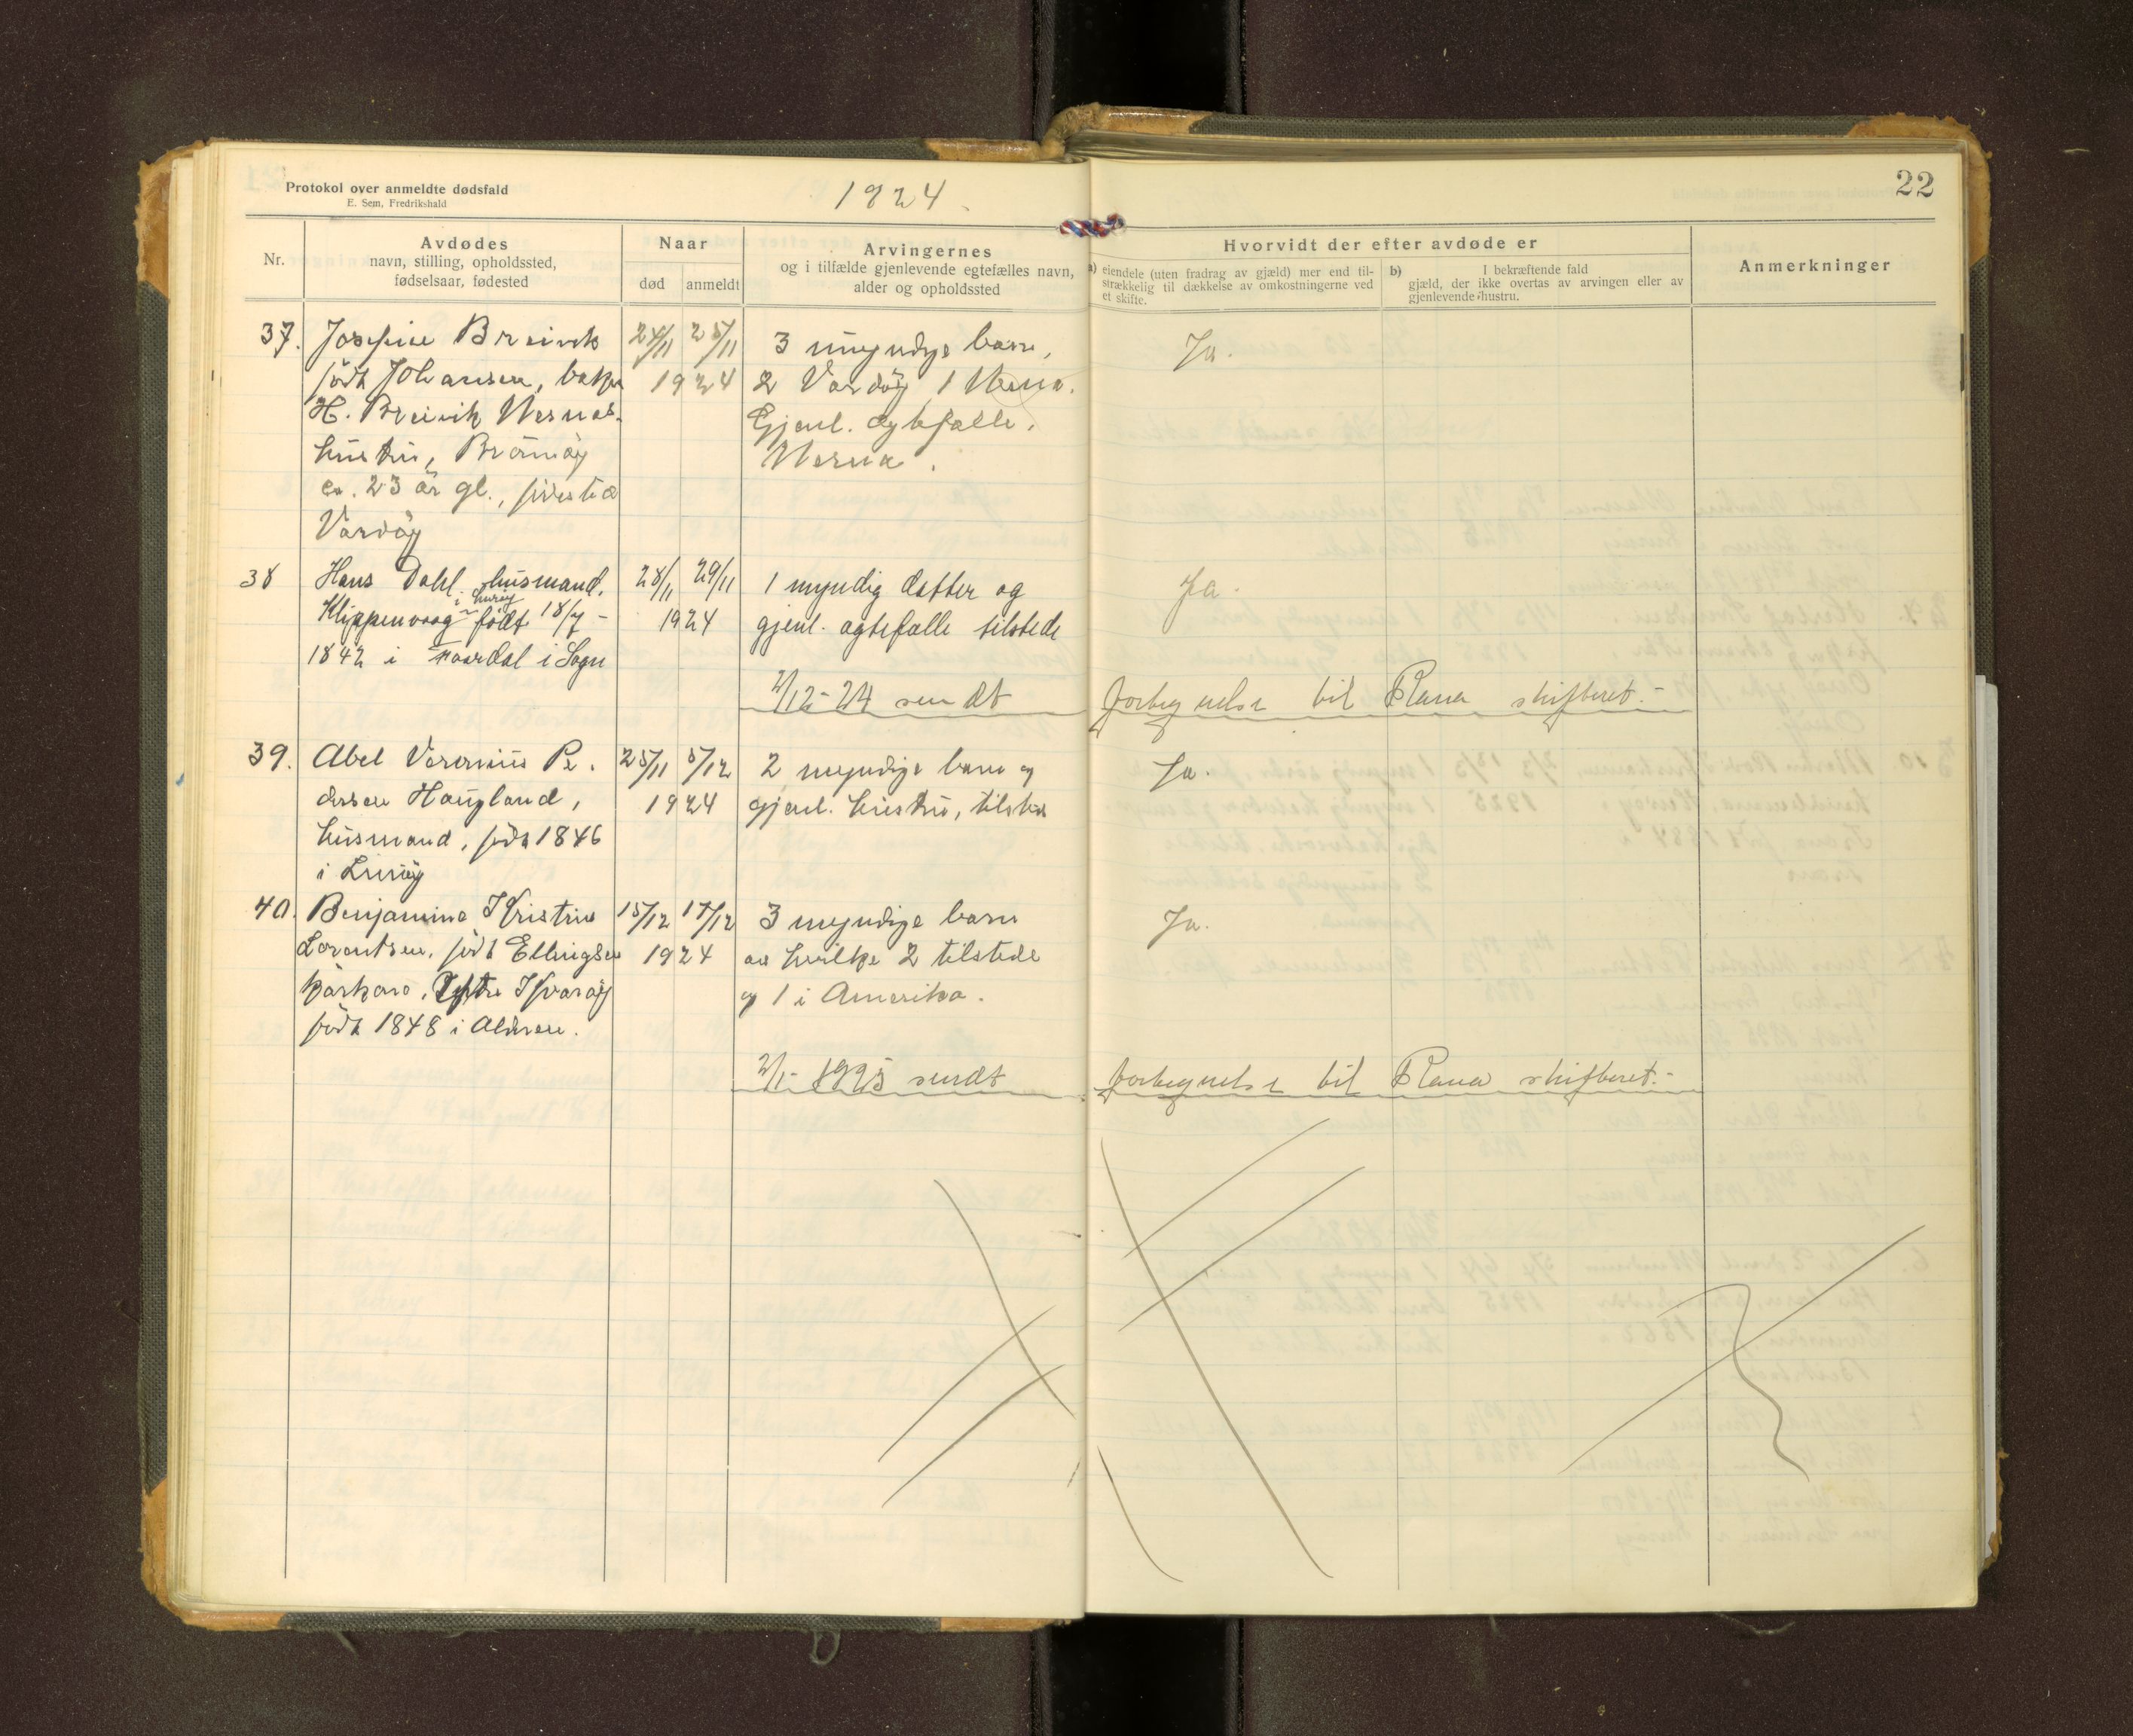 Protokol over anmeldte dødsfald
E. Sem, Fredrikshald
1924.
22
Nr.
Avdødes
navn, stilling, opholdssted,
fødselsaar, fødested
Naar
død
anmeldt
Arvingernes
og i tilfælde gjenlevende egtefælles navn,
alder og opholdssted
Hvorvidt der efter avdøde er
a) eiendele (uten fradrag av gjæld) mer end til-
strækkelig til dækkelse av omkostningerne ved
et skifte.
b) I bekræftende fald
gjæld, der ikke overtas av arvingen eller av
gjenlevende hustru.
Anmerkninger
37. Josefine Breivik 24/11 25/11 3 umyndige barn, Ja.
født Johansen, 1924 2 Vardøy, 1
H. Breivik
hustru, Gjenl. egtefælle,
ca. 23 år gl., fødested
Vardøy
38 Hans Dahl, husmand, 28/11 29/11 1 myndig datter og Ja.
i Lurøy
Klippenvaag født 18/7 - 1924 gjenl. egtefælle tilstede
1842 i Aardal i Sogn
2/12-24 sendt fortegnelse til Rana skifteret.-
39. Abel Pe- 25/11 5/12 2 myndige barn og Ja.
dersen Haugland, 1924 gjenl. hustru, tilsted
husmand, født 1846
i Lurøy
40. Benjamine Kristine 15/12 17/12 3 myndige barn Ja.
Lorentsen, født Ellingsen 1924 av hvilke 2 tilstede
Kvarøy og 1 i Amerika.
født 1848 i Aldersen.
2/1-1925 sendt fortegnelse til Rana skifteret.-